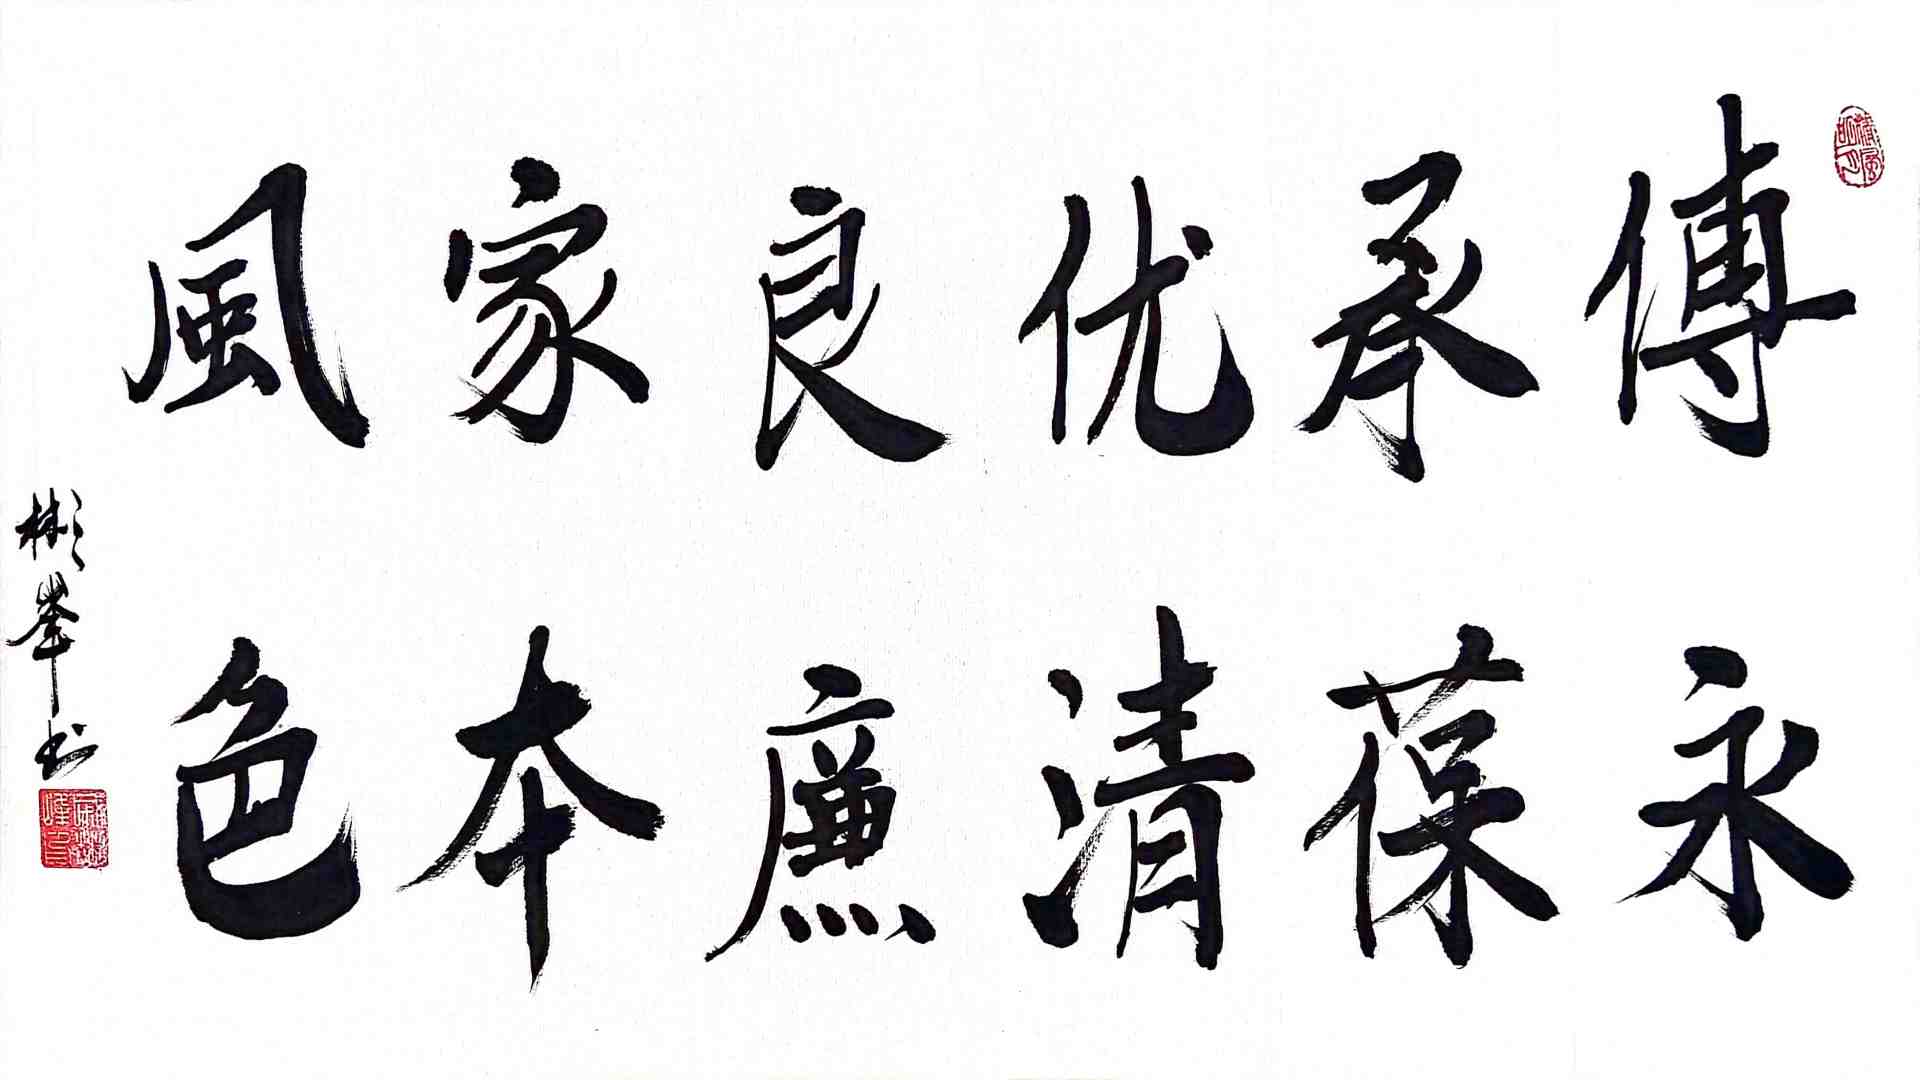 傳承优良家風
永葆清廉本色
彬峯书